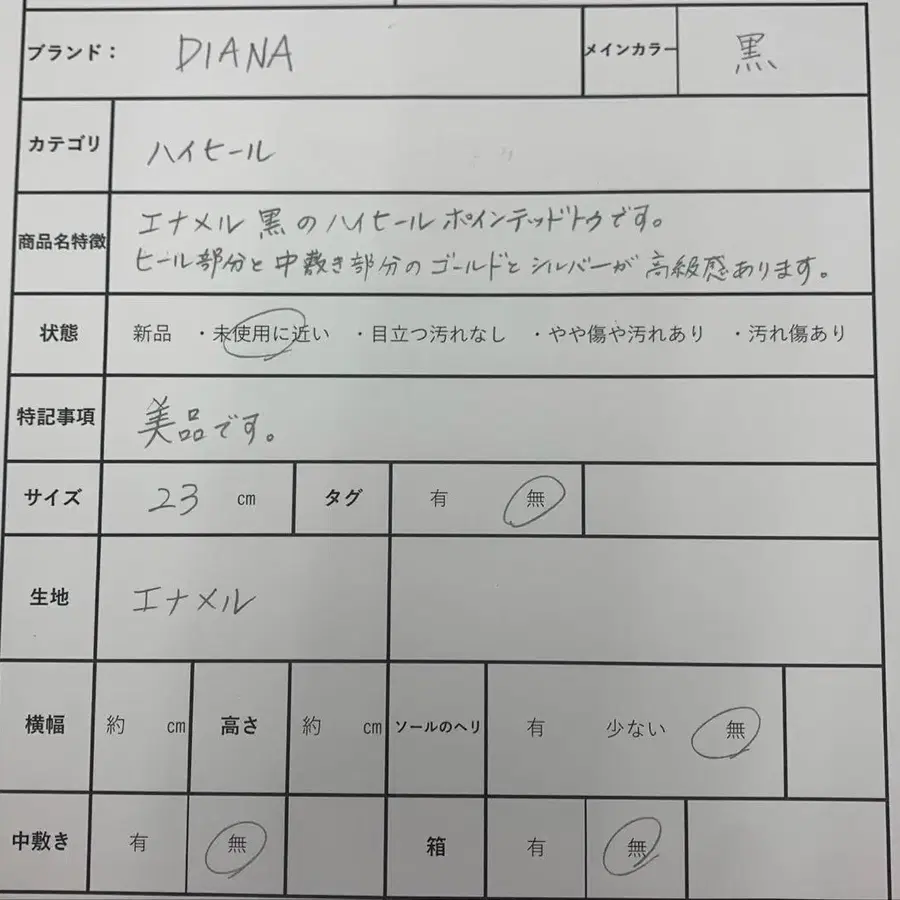 ブランド： DIANA メインカラー 黒
カテゴリ ハイヒール
商品名特徴 エナメル 黒 の ハイヒール ポインテッドトウです。
ヒール部分と 中敷き部分の ゴールドと シルバーが 高級感あります。
状態 新品 ・未使用に近い ・目立つ汚れなし ・やや傷や汚れあり ・汚れ傷あり
特記事項 美品です。
サイズ 23 cm タグ 有 無
生地 エナメル
横幅 約 cm 高さ 約 cm ソールのヘリ 有 少ない 無
中敷き 有 無 箱 有 無